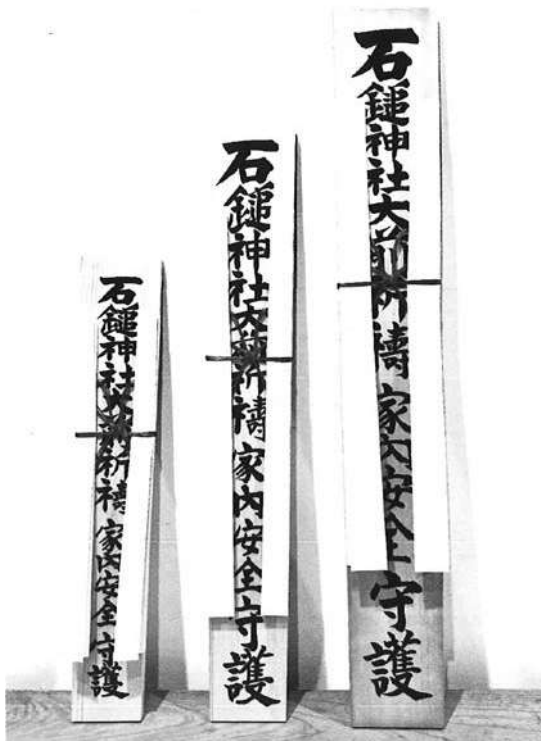 石鎚神社大前祈禱 家内安全守護
石鎚神社大前祈禱 家内安全守護
石鎚神社大前祈禱 家内安全守護